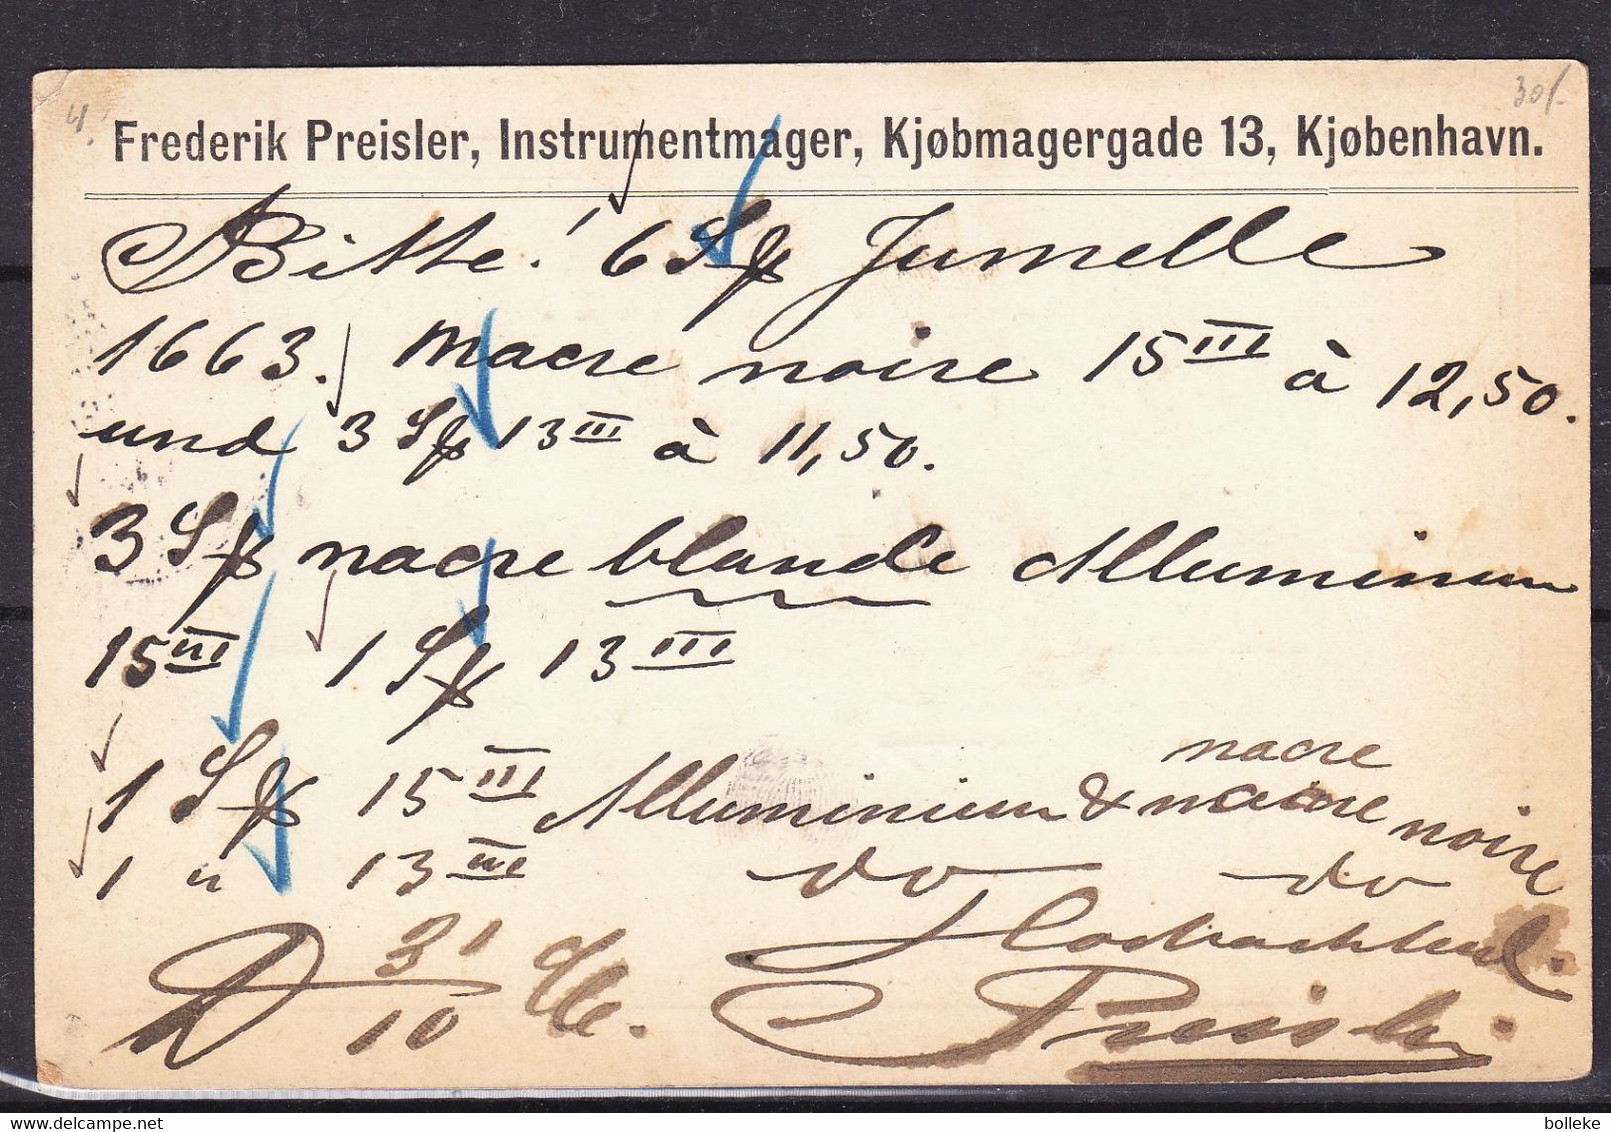 4!
30/-
Frederik Preisler, Instrumentmager, Kjøbmagergade 13, Kjøbenhavn.
Bitte! 6 Sp Jumelle
1663. nacre noire 15 III à 12,50.
und 3 Sp 13 III à 11,50.
3 Sp nacre blande Alluminium
15 III 1 Sp 13 III
nacre
1 Sp 15 III Alluminium & nacre noire
1 " 13 III do do
D 31/10
Hochachtend.
Preisler
bolleke